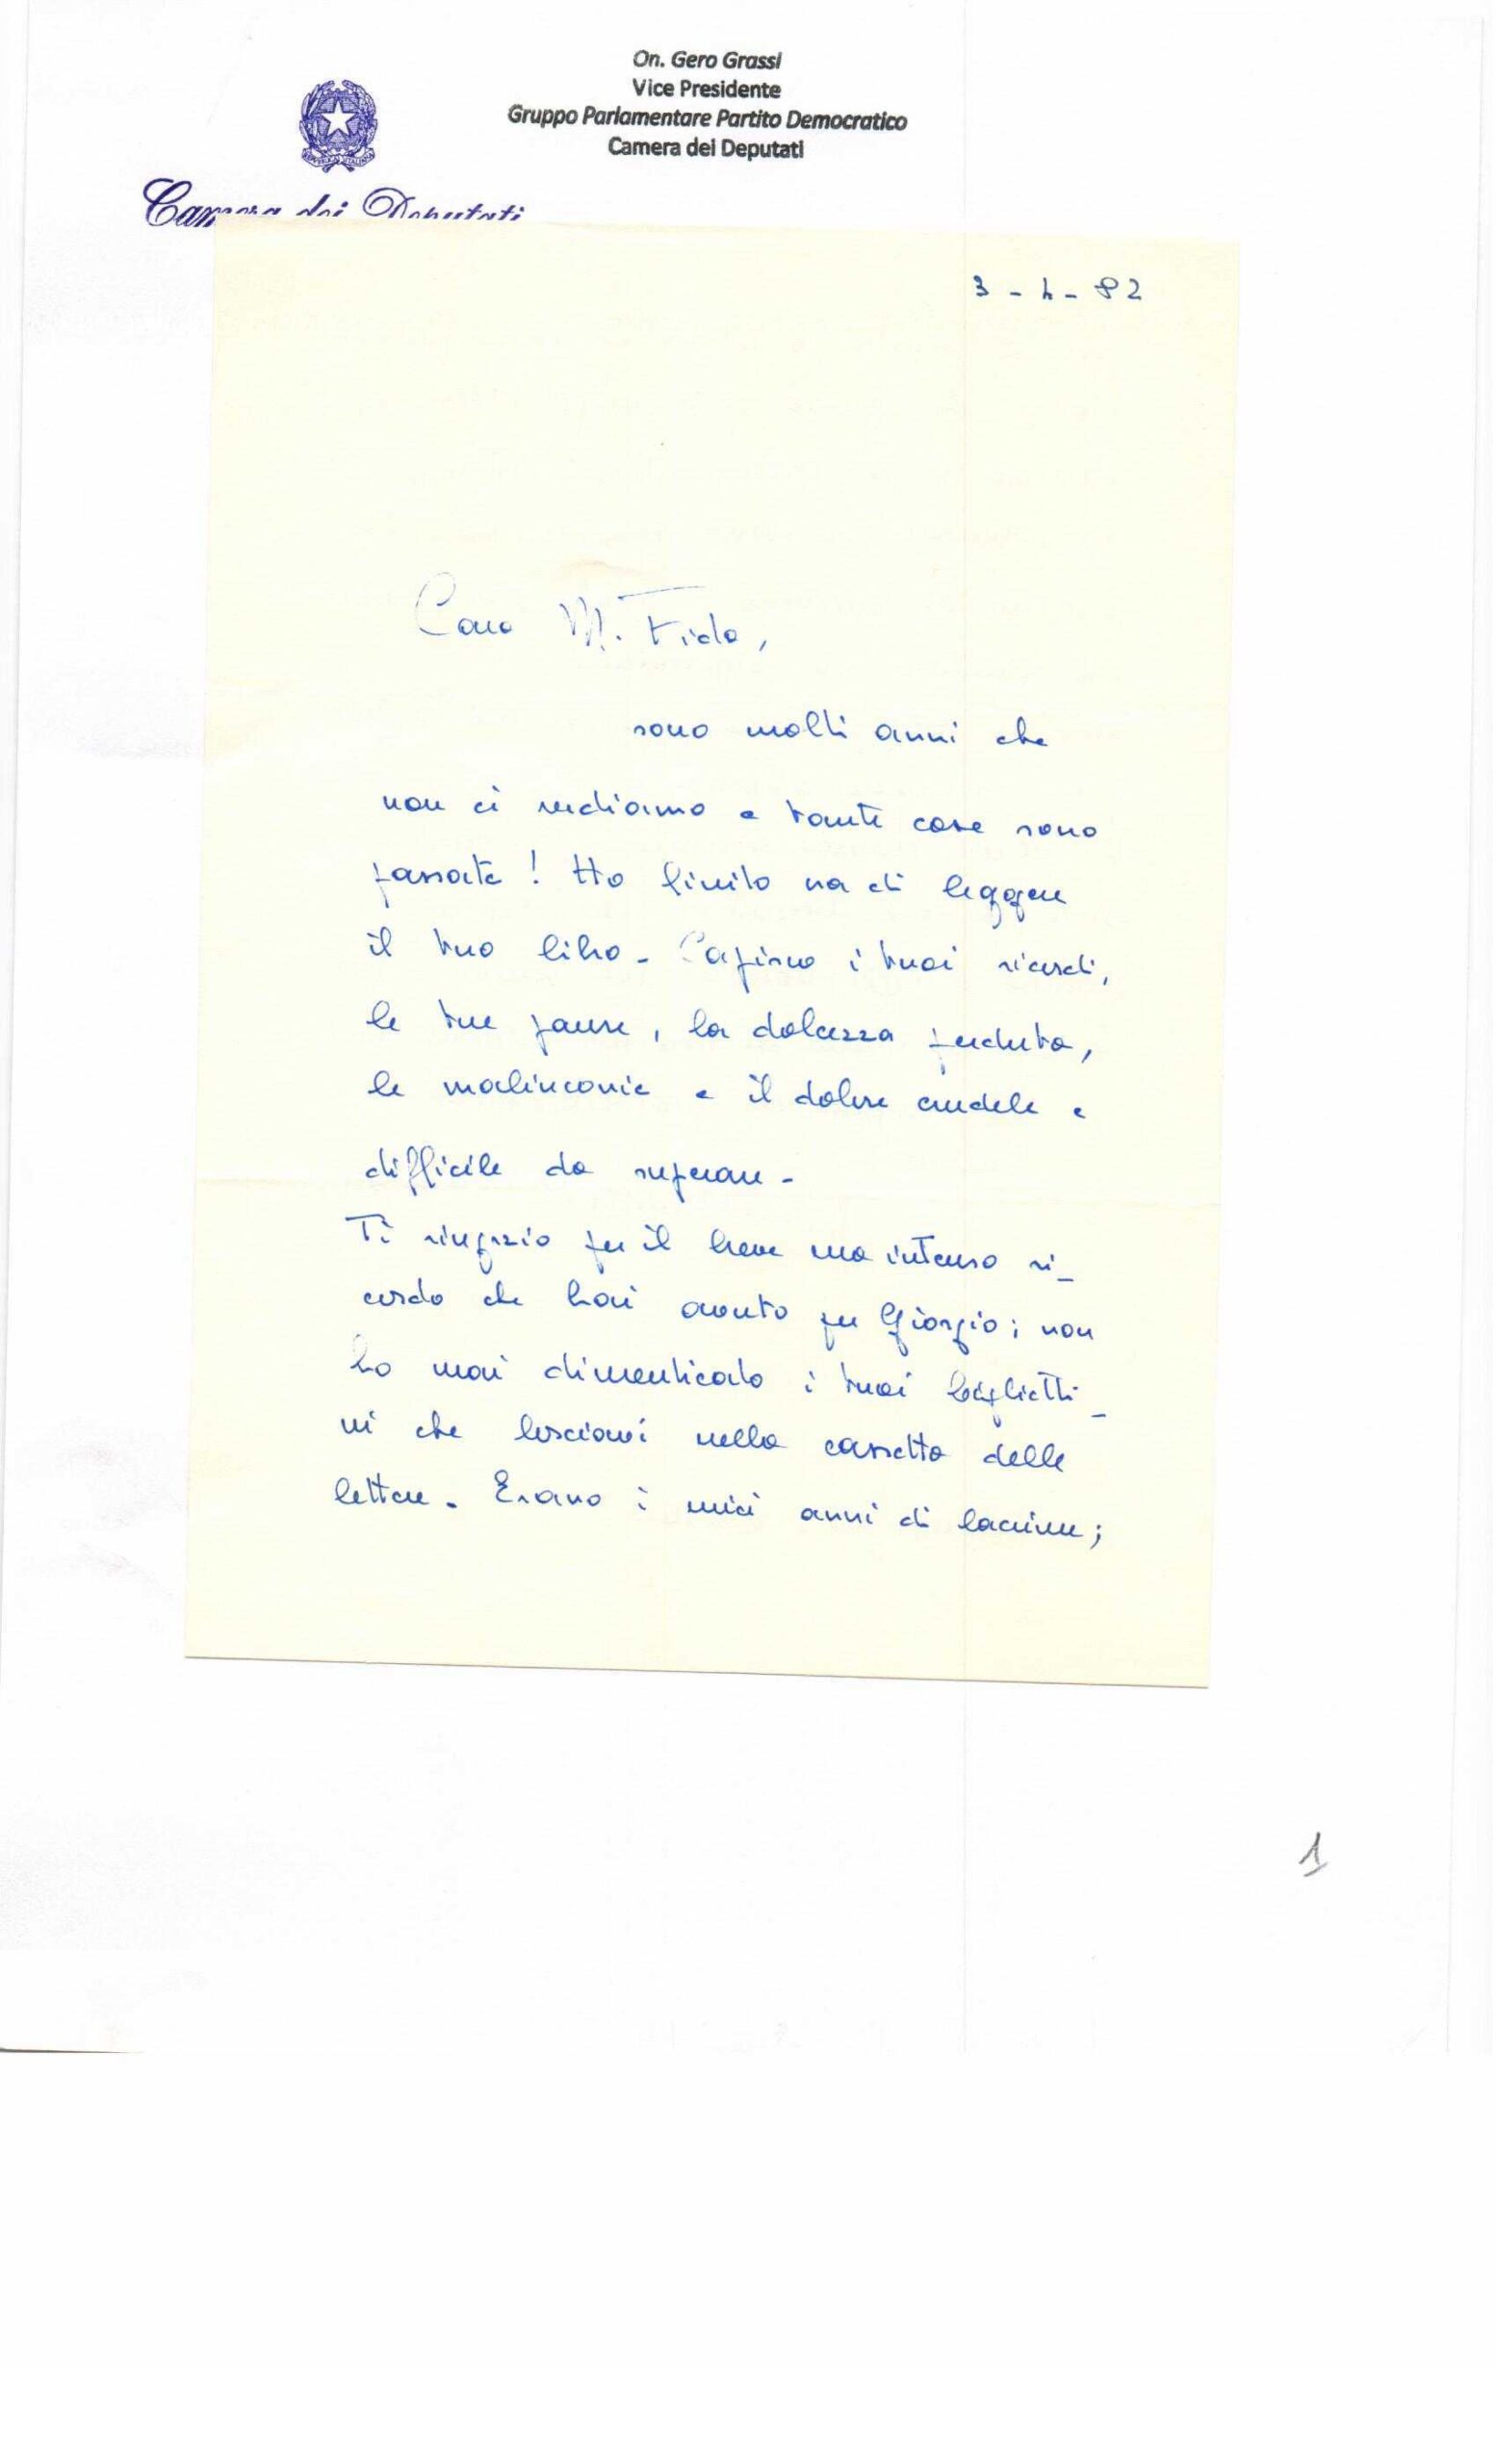 On. Gero Grassi
Vice Presidente
Gruppo Parlamentare Partito Democratico
Camera dei Deputati
Camera dei Deputati
3 - 4 - 82
Caro M. Fida,
sono molti anni che
non ci vediamo e tante cose sono
passate! Ho finito ora di leggere
il tuo libro - Capisco i tuoi ricordi,
le tue paure, la dolcezza perduta,
le malinconie e il dolore crudele e
difficile da superare -
Ti ringrazio per il breve ma intenso ri_
cordo che hai avuto per Giorgio; non
ho mai dimenticato i tuoi bigliettì_
ni che lasciavi nella cassetta delle
lettere - Erano i miei anni di lacrime;
1